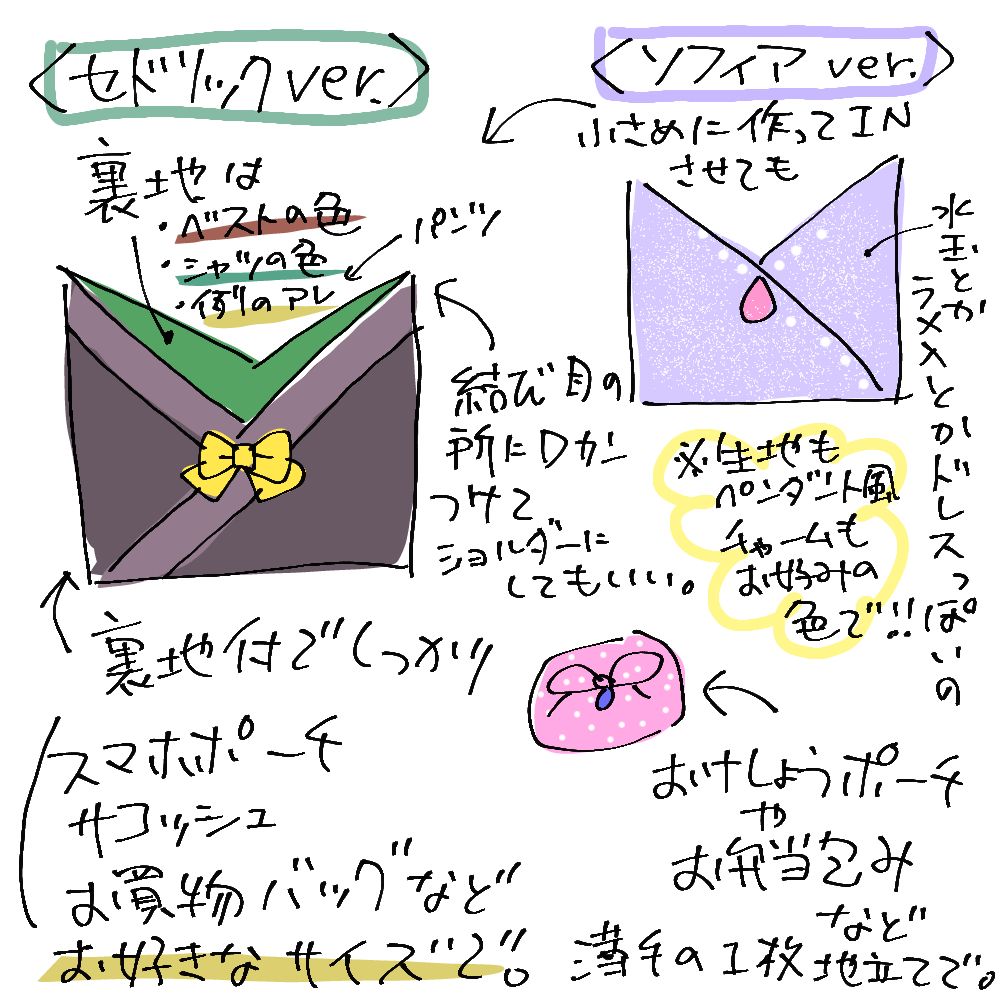 〈セドリックver.〉
裏地は
・ベストの色
・シャツの色
パンツ
結び目の
所にDカン
つけて
ショルダーに
してもいい。
裏地付でしっかり
スマホポーチ
サコッシュ
お買物バッグなど
お好きなサイズで。
〈ソフィアver.〉
小さめに作ってIN
させても
水玉とか
ラメ入とかドレスっぽいの
※生地も
ペンダント風
チャームも
お好みの
色で!!
おけしょうポーチ
や
お弁当包み
など
薄手の1枚地立てで。